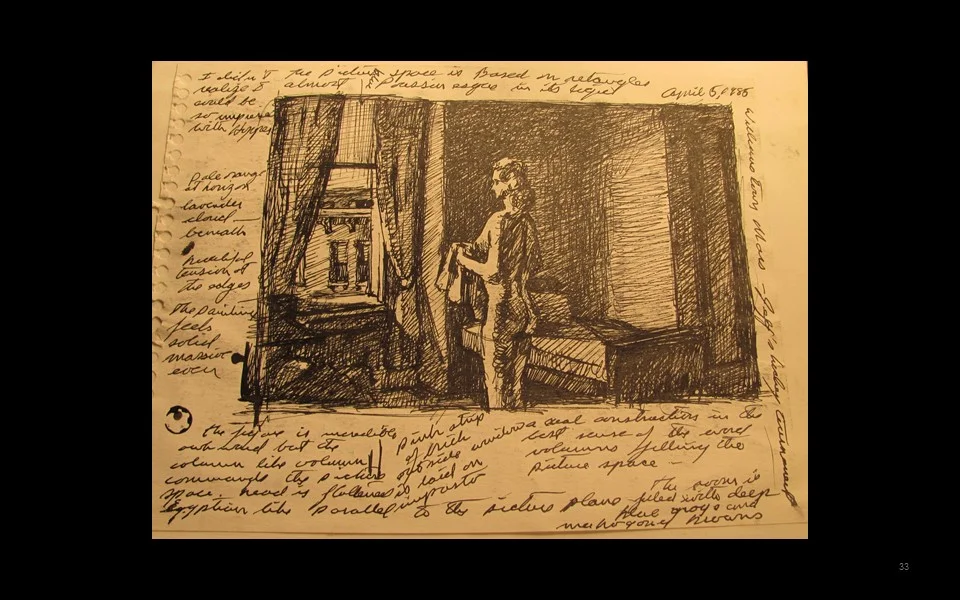 I didn't
realize I
would be
so impressed
with Hopper
The picture space is Based on rectangles
almost Poussin esque in its rigor
April 5, 1986
Pale orange
at horizon
lavender
cloud —
beneath
Beautiful
tension at
the edges
The painting
feels
solid
massive
even
Williams town Mass — Jeff's hockey tournament
the figure is incredibly
awkward but the
column like volumn
commands the picture
space. head is flattened
Egyptian like parallel to the picture plane
Pink strip
of brick
outside window
is laid on
impasto
a real construction in the
best sense of the word
volumns filling the
picture space —
The room is
filled with deep
blue grays and
mahogany browns
33